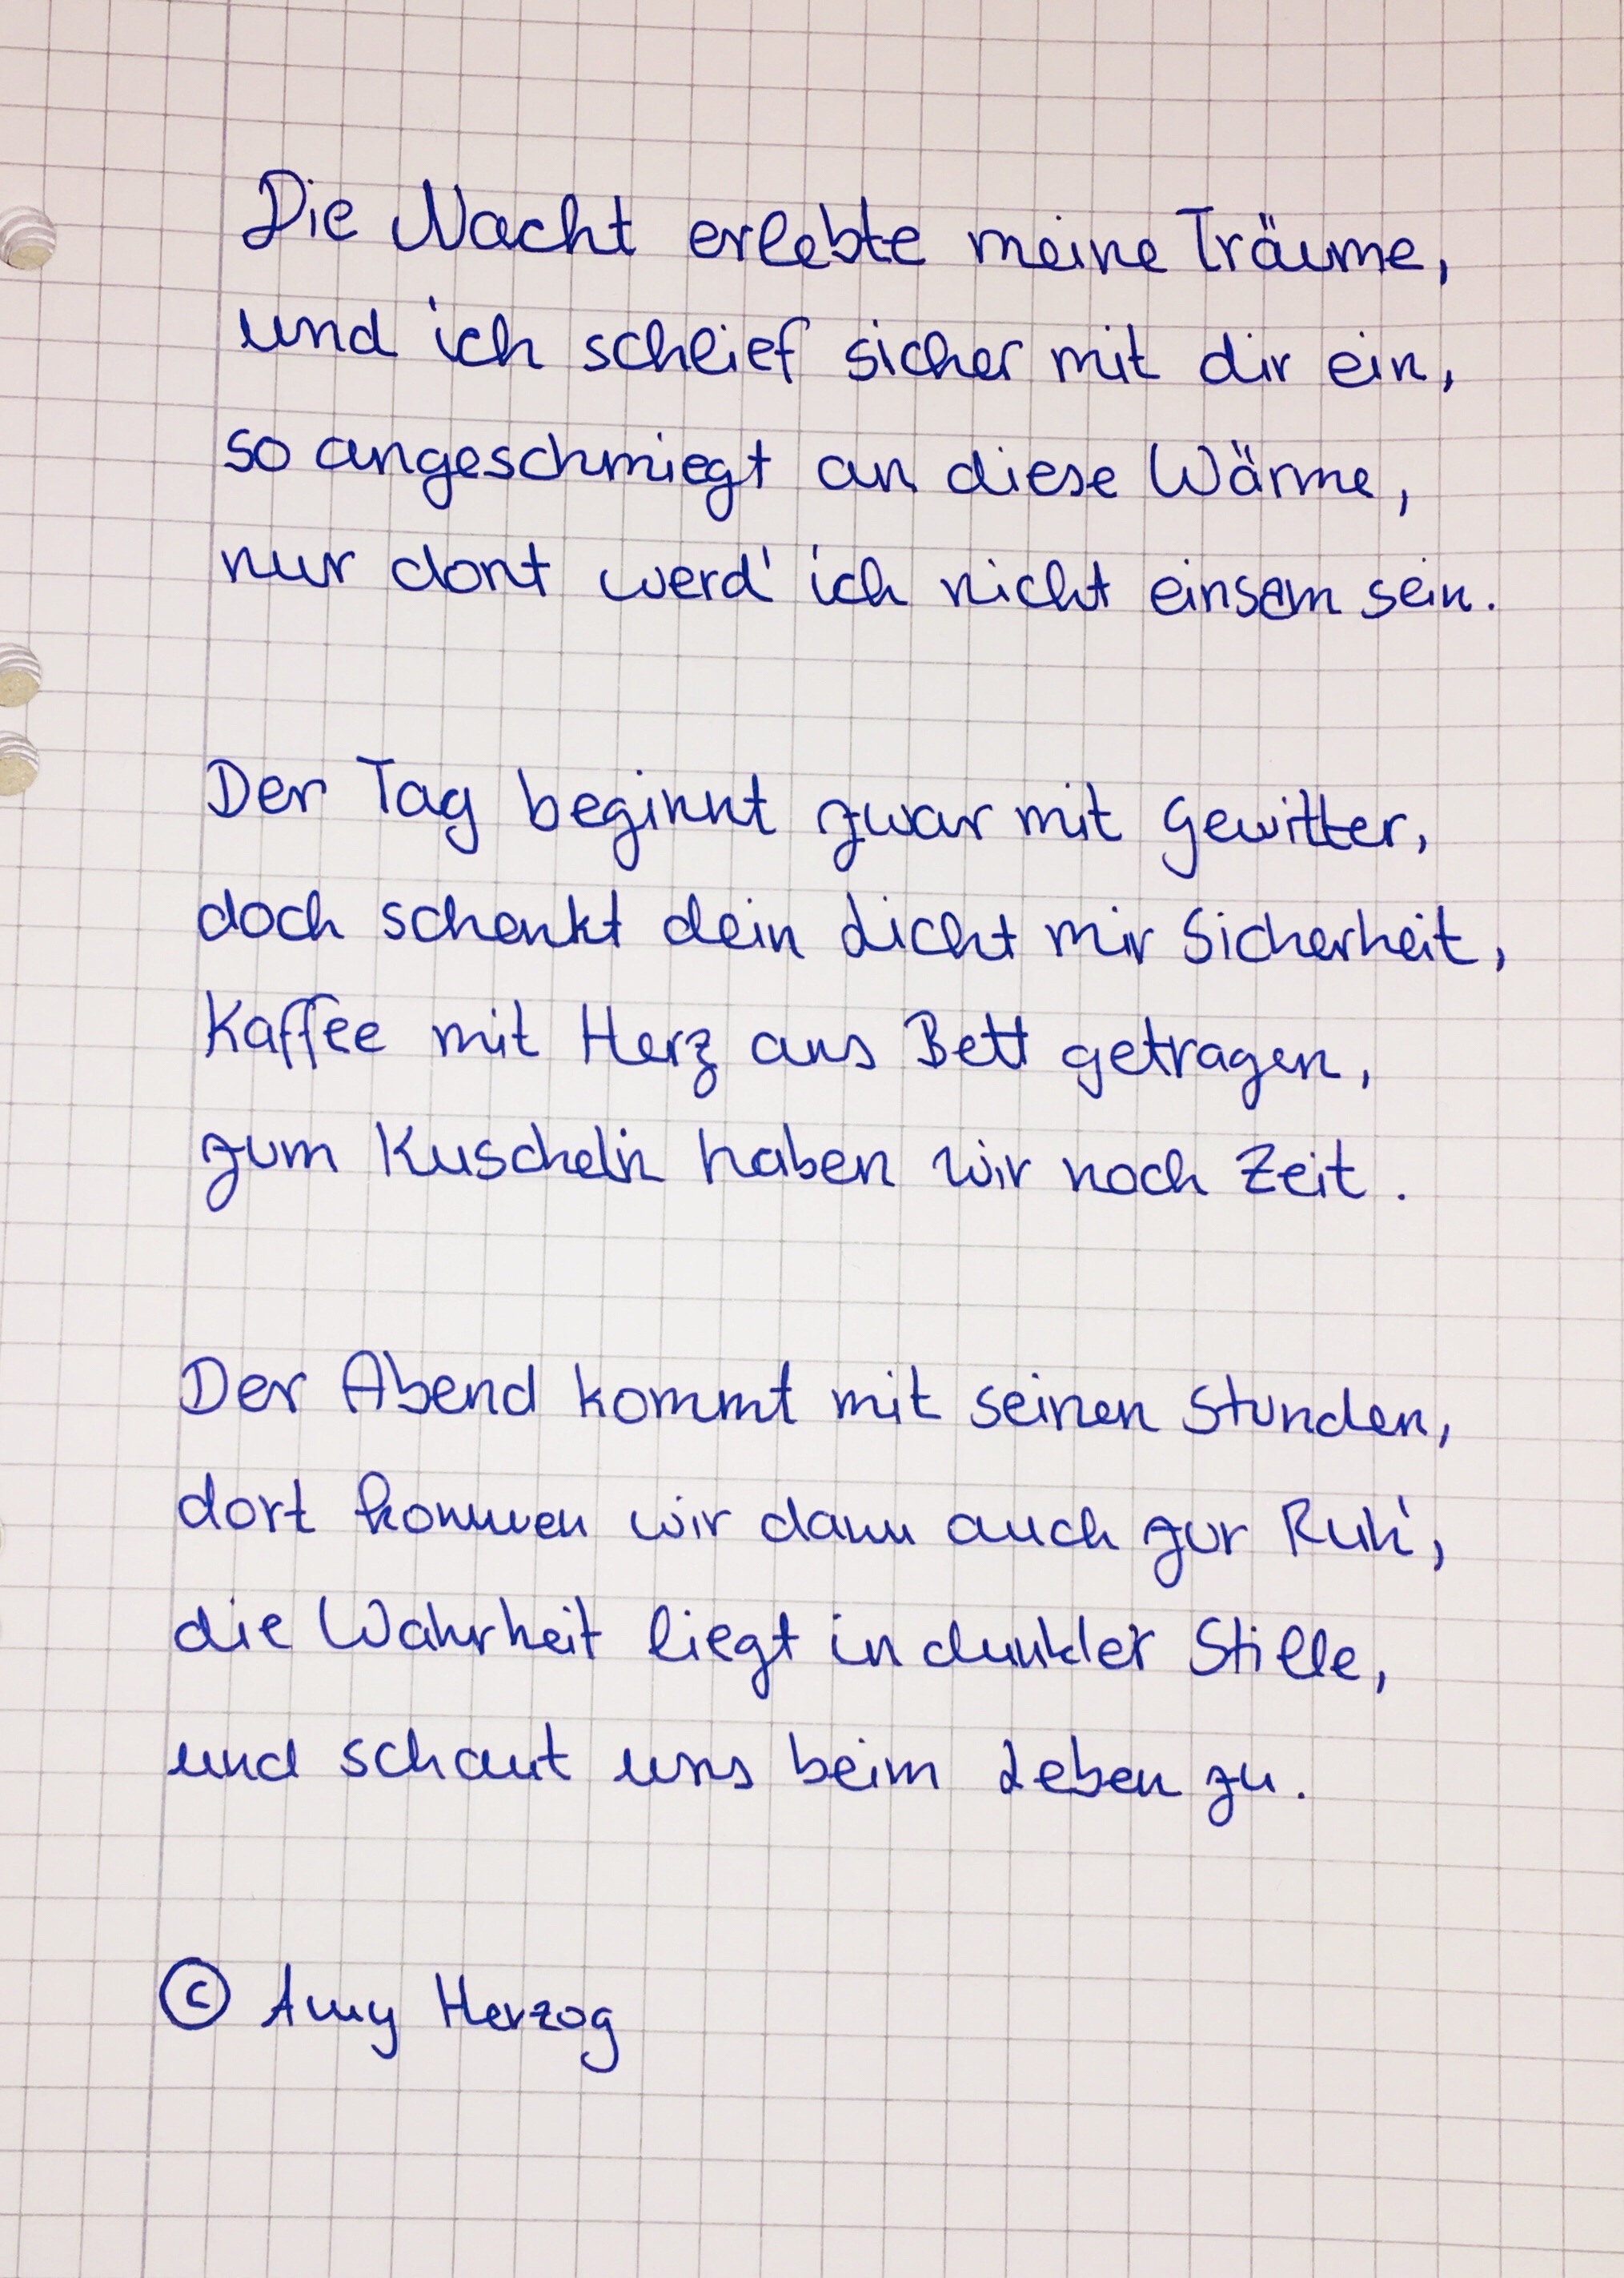 Die Nacht erlebte meine Träume,
und ich schlief sicher mit dir ein,
so angeschmiegt an diese Wärme,
nur dort werd' ich nicht einsam sein.
Der Tag beginnt zwar mit Gewitter,
doch schenkt dein Licht mir Sicherheit,
Kaffee mit Herz ans Bett getragen,
zum Kuscheln haben wir noch Zeit.
Der Abend kommt mit seinen Stunden,
dort kommen wir dann auch zur Ruh',
die Wahrheit liegt in dunkler Stille,
und schaut uns beim Leben zu.
© Amy Herzog